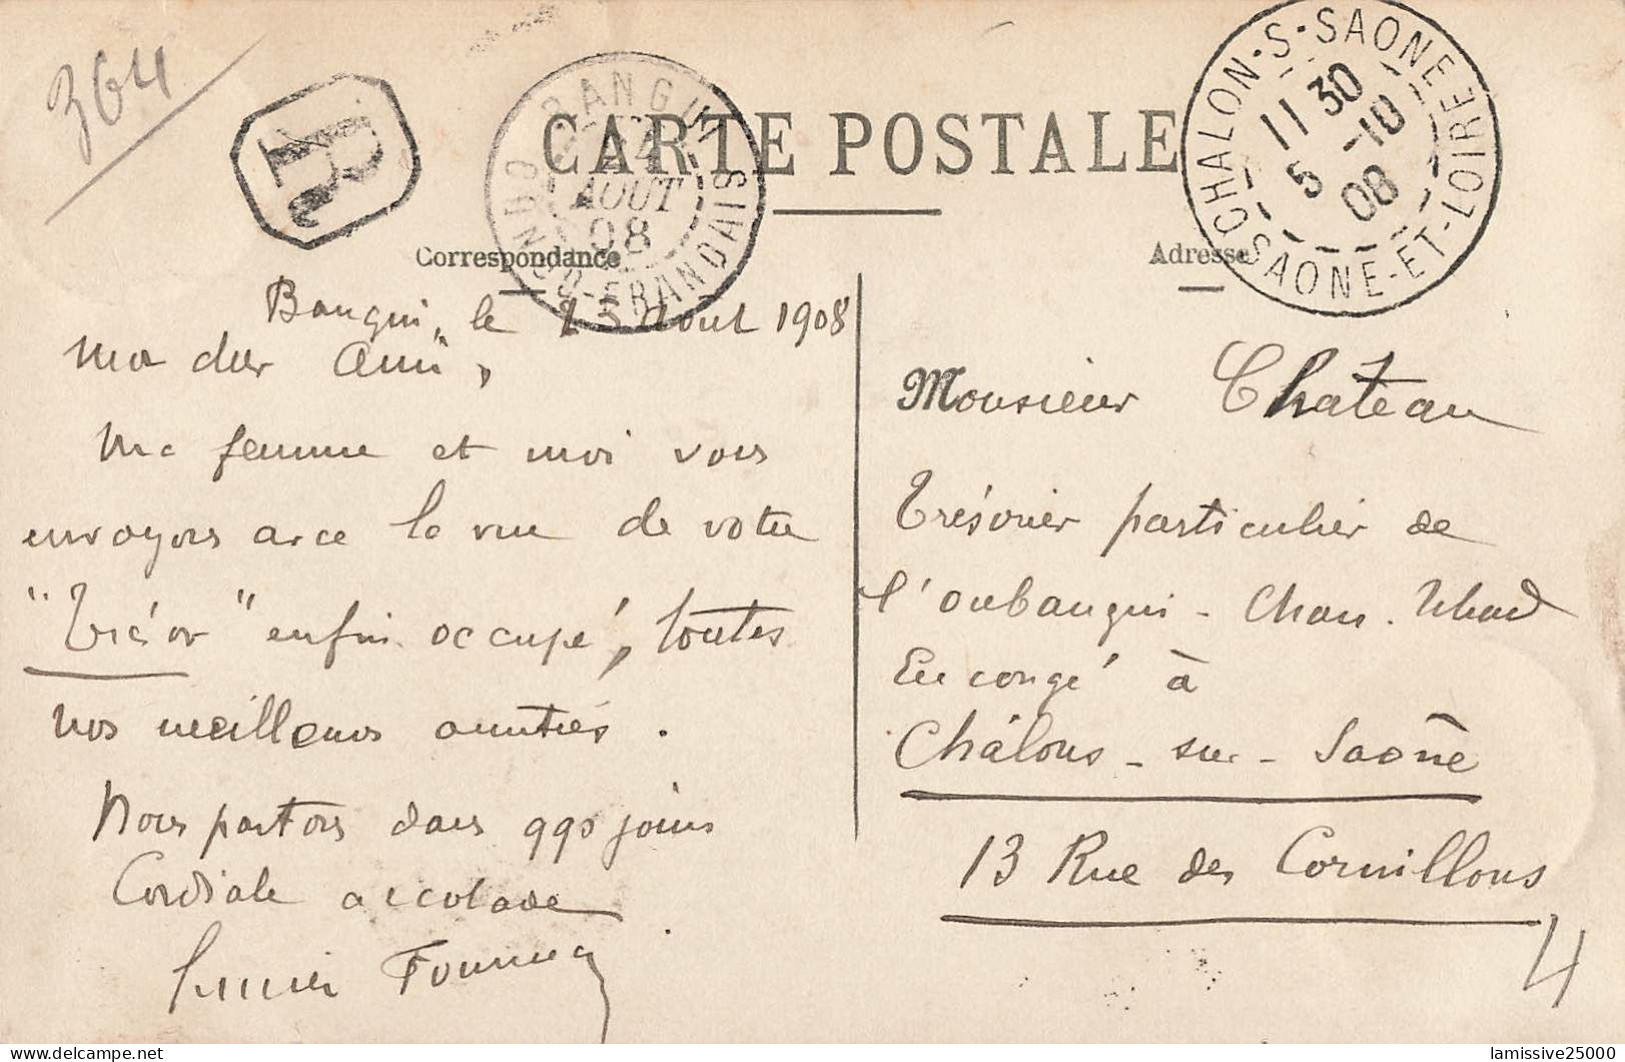 364
R
BANGUI
CONGO-FRANÇAIS
24
AOUT
08
CHALON-S-SAONE
SAONE-ET-LOIRE
11 30
5 -10
08
CARTE POSTALE
Correspondance
Adresse
Bangui, le 25 Août 1908
Mon cher Ami,
Ma femme et moi vous
envoyons avec la vue de votre
"Trésor" enfin occupé, toutes
nos meilleures amitiés.
Nous partons dans qqes jours
Cordiale accolade
Fournier
Monsieur Chateau
Trésorier particulier de
l'oubangui - Chari. Tchad
En congé à
Châlons - sur - Saône
13 Rue des Cornillons
4
lamissive25000